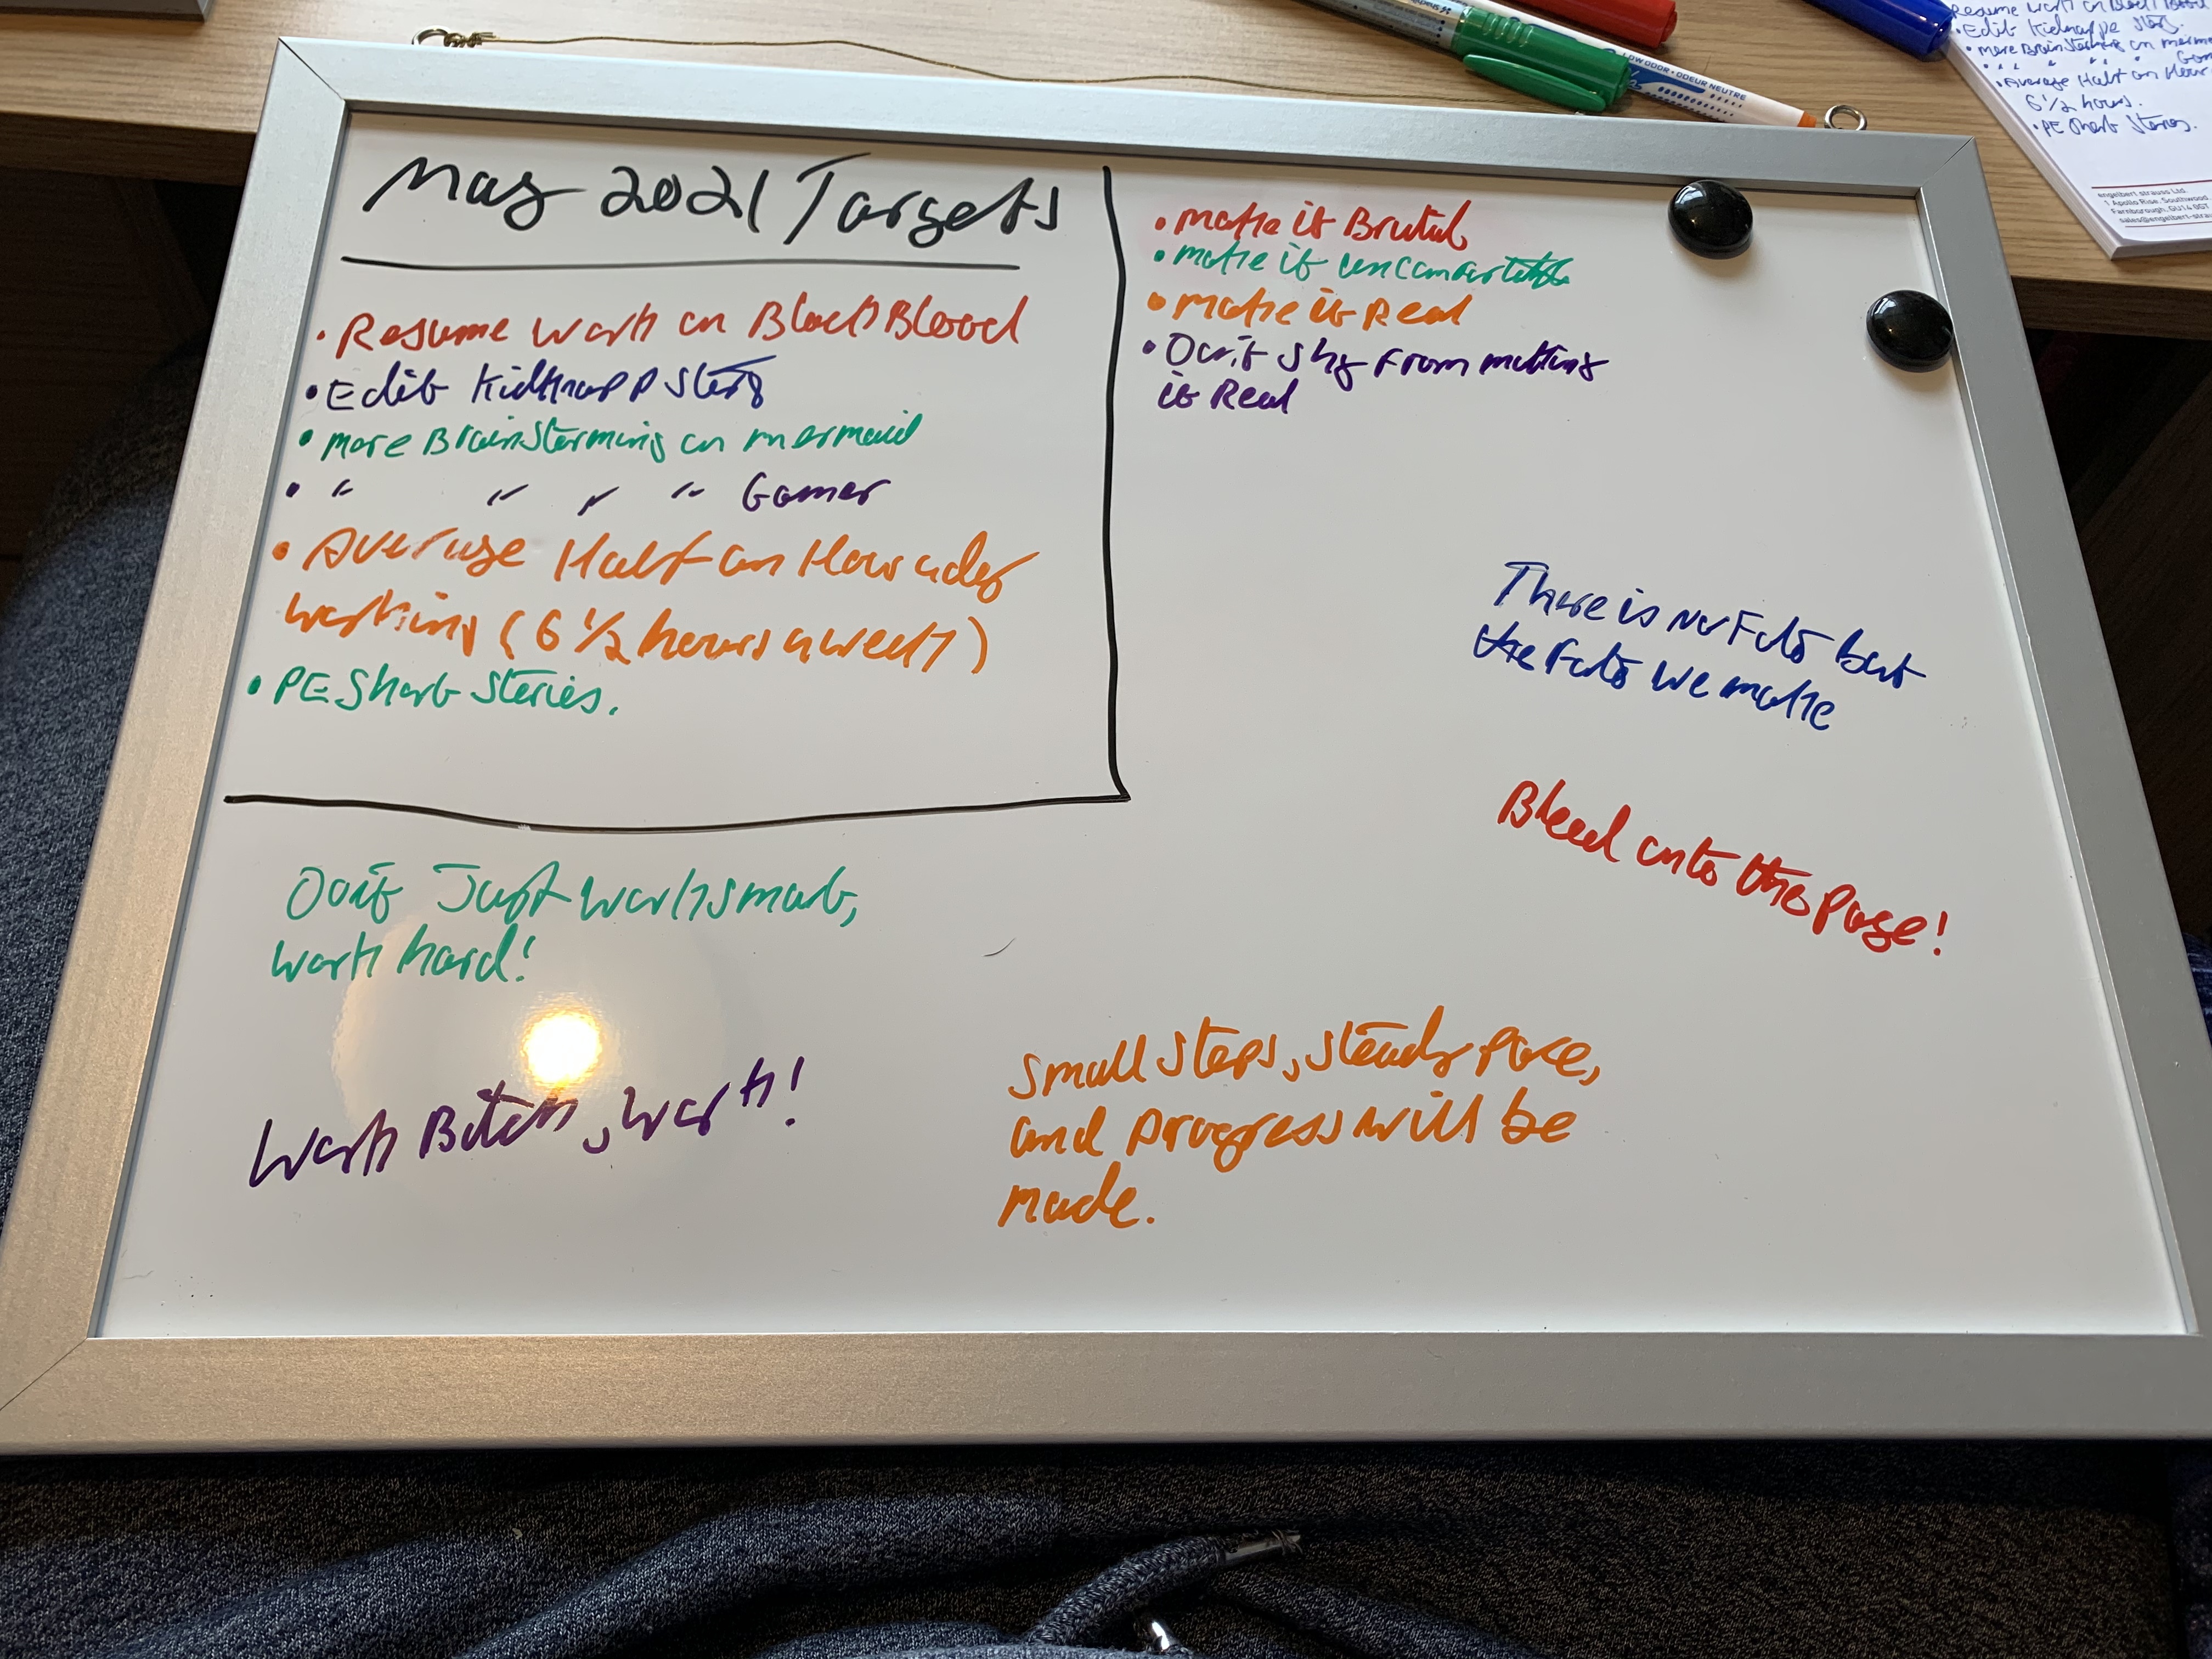 May 2021 Targets
• Resume work on Black Blood
• Edit Kidnapp Story
• more Brainstorming on mermaid
• " " " " Gamer
• Average Half an Hour a day
working (6 1/2 hours a week)
• PE Short Stories.
• make it Brutal
• make it uncomfortable
• make it Real
• Don't shy from making
it Real
There is no Fate but
the Fate we make
Bleed onto the Page!
Don't Just work smart,
work hard!
Work Bitch, work!
Small steps, steady pace,
and progress will be
made.
ODEUR NEUTRE
Resume work on Black Blood
• Edit Kidnappe Story.
• more Brainstorming on
• " " " "
• Average Half an Hour
6 1/2 hours.
• PE Short Stories.
engelbert strauss Ltd.
1 Apollo Rise, Southwood
Farnborough, GU14 0GT